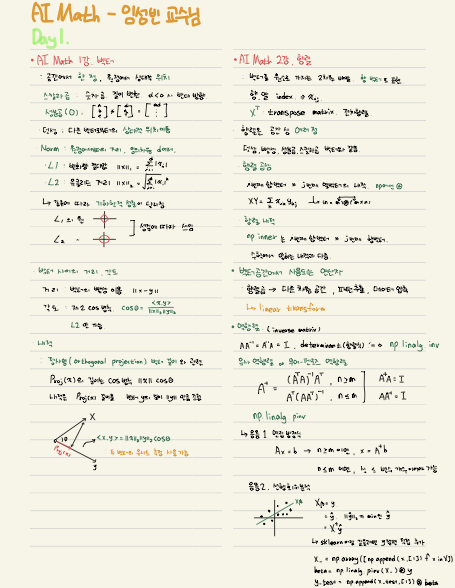 AI Math - 임성빈 교수님
Day1.
• AI Math 1강. 벡터
: 공간에서 한 점, 원점에서 상대적 위치
스칼라곱 : 숫자곱. 길이 변환 α<0 시 반대 방향
성분곱 (⊙)
덧셈 : 다른 벡터로부터의 상대적 위치이동
Norm : 원점에서부터의 거리.
· L1 : 변화량 절대값 ||x||₁ = Σ|xᵢ|
· L2 : 유클리드 거리 ||x||₂ = √Σ|xᵢ|²
↳ 종류에 따라 기하학적 성질이 달라짐
L1
L2 =
성질에 따라 쓰임
벡터 사이의 거리, 각도
거리 : 벡터의 뺄셈 이용 ||x-y||
각도 : 제2 cos 법칙 cosθ = <x,y> / ||x||₂||y||₂
L2 만 가능
내적
: 정사영 (orthogonal projection) 벡터 길이와 관련
Proj(x)의 길이는 cos법칙 ||x|| cosθ
내적은 Proj(x) 길이를 벡터 y의 길이 ||y|| 만큼 조정
x
θ
Proj(x)
y
<x,y> = ||x||₂||y||₂ cosθ
• AI Math 2강. 행렬
: 벡터를 원소로 가지는 2차원 배열. 행 벡터로 표현
행, 열 index. → xᵢⱼ
Xᵀ transpose matrix. 전치행렬
행렬은 공간 상 여러 점
덧셈, 뺄셈, 성분곱, 스칼라곱 벡터와 같음.
행렬 곱셈
i번째 행벡터 × j번째 열벡터의 내적.
XY = Σ xᵢₖ yₖⱼ
행렬 내적
np.inner 는 i번째 행벡터 × j번째 행벡터.
수학에서 말하는 내적과 다름.
• 벡터공간에서 사용되는 연산자
: 행렬곱 → 다른 차원 공간, 패턴추출, 데이터 압축
↳ linear transform
• 역행렬. (inverse matrix)
AA⁻¹ = A⁻¹A = I , determinant (행렬식) ≠ 0 np.linalg.inv
유사 역행렬 or 무어-펜로즈 역행렬
A⁺ = (AᵀA)⁻¹Aᵀ, n≥m A⁺A = I
Aᵀ(AAᵀ)⁻¹, n≤m AA⁺ = I
np.linalg.pinv
↳ 응용 1. 연립방정식
Ax = b → n≥m 이면, x = A⁺b
n≤m 이면,
응용2. 선형회귀분석
Xβ
Xβ = y
= ŷ
= X⁺y
↳ sklearn
X_ = np.array([np.append(x,[1]) for x in X])
beta = np.linalg.pinv(X_) @ y
y_test = np.append(x_test,[1]) @ beta